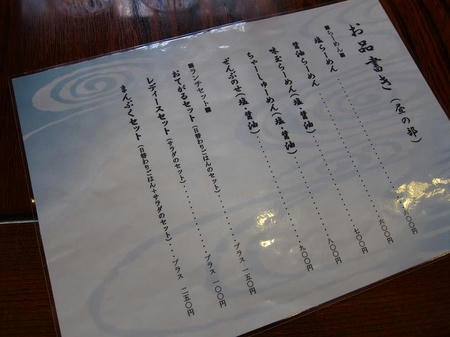 お品書き（昼の部）
■らーめん■
塩らーめん・・・六〇〇円
醤油らーめん・・・六〇〇円
味玉らーめん（塩・醤油）・・・七〇〇円
ちゃーしゅーめん（塩・醤油）・・・八〇〇円
ぜんぶのせ（塩・醤油）・・・九〇〇円
■ランチセット■
おてがるセット（日替わりごはんのセット）・・・プラス 一五〇円
レディースセット（サラダのセット）・・・プラス 一〇〇円
まんぷくセット（日替わりごはん＋サラダのセット）・・・プラス 二五〇円